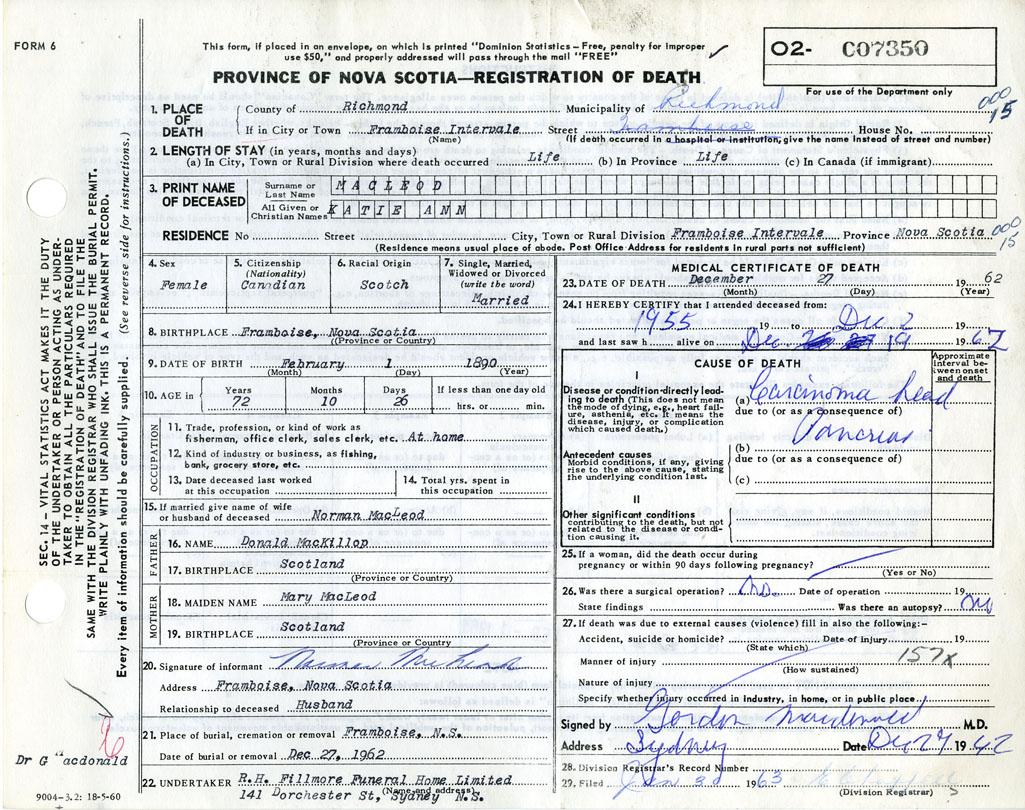 FORM 6
This form, if placed in an envelope, on which is printed "Dominion Statistics – Free, penalty for improper
use $50," and properly addressed will pass through the mail "FREE"
O2- C07350
For use of the Department only
PROVINCE OF NOVA SCOTIA—REGISTRATION OF DEATH
1. PLACE OF DEATH
County of Richmond Municipality of Richmond 000 15
If in City or Town Framboise Intervale Street Framboise House No.
(Name) (If death occurred in a hospital or institution, give the name instead of street and number)
2. LENGTH OF STAY (in years, months and days)
(a) In City, Town or Rural Division where death occurred Life (b) In Province Life (c) In Canada (if immigrant)
3. PRINT NAME OF DECEASED
Surname or Last Name MACLEOD
All Given or Christian Names KATIE ANN
RESIDENCE No Street City, Town or Rural Division Framboise Intervale Province Nova Scotia 000 15
(Residence means usual place of abode. Post Office Address for residents in rural parts not sufficient)
4. Sex
Female
5. Citizenship
(Nationality)
Canadian
6. Racial Origin
Scotch
7. Single, Married,
Widowed or Divorced
(write the word)
Married
8. BIRTHPLACE Framboise, Nova Scotia
(Province or Country)
9. DATE OF BIRTH February 1 1890
(Month) (Day) (Year)
10. AGE in
Years Months Days If less than one day old
72 10 26 hrs. or min.
OCCUPATION
11. Trade, profession, or kind of work as
fisherman, office clerk, sales clerk, etc. At home
12. Kind of industry or business, as fishing,
bank, grocery store, etc.
13. Date deceased last worked
at this occupation
14. Total yrs. spent in
this occupation
15. If married give name of wife
or husband of deceased Norman MacLeod
FATHER
16. NAME Donald MacKillop
17. BIRTHPLACE Scotland
(Province or Country)
MOTHER
18. MAIDEN NAME Mary MacLeod
19. BIRTHPLACE Scotland
(Province or Country)
20. Signature of informant Norman MacLeod
Address Framboise, Nova Scotia
Relationship to deceased Husband
21. Place of burial, cremation or removal Framboise, N.S.
Date of burial or removal Dec 27, 1962
22. UNDERTAKER R.H. Fillmore Funeral Home Limited
(Name and address)
141 Dorchester St, Sydney N.S.
MEDICAL CERTIFICATE OF DEATH
23. DATE OF DEATH December 27 1962
(Month) (Day) (Year)
24. I HEREBY CERTIFY that I attended deceased from:
1955 19 to Dec 2 19
and last saw h alive on Dec. 19 1962
CAUSE OF DEATH
Approximate
interval be-
tween onset
and death
I
Disease or condition directly lead-
ing to death (This does not mean
the mode of dying, e.g., heart fail-
ure, asthenia, etc. It means the
disease, injury, or complication
which caused death.)
(a) Carcinoma head
due to (or as a consequence of)
Pancreas
Antecedent causes
Morbid conditions, if any, giving
rise to the above cause, stating
the underlying condition last.
(b)
due to (or as a consequence of)
(c)
II
Other significant conditions
contributing to the death, but not
related to the disease or condi-
tion causing it.
25. If a woman, did the death occur during
pregnancy or within 90 days following pregnancy?
(Yes or No)
26. Was there a surgical operation? no. Date of operation 19
State findings Was there an autopsy? no
27. If death was due to external causes (violence) fill in also the following:–
Accident, suicide or homicide? Date of injury 19
(State which)
Manner of injury 157x
(How sustained)
Nature of injury
Specify whether injury occurred in industry, in home, or in public place
Signed by Gordon Macdonald M.D.
Address Sydney Date Dec 27 1962
28. Division Registrar's Record Number
29. Filed Jan 30 1963
(Division Registrar)
SEC. 14 – VITAL STATISTICS ACT MAKES IT THE DUTY
OF THE UNDERTAKER OR PERSON ACTING AS UNDER-
TAKER TO OBTAIN ALL THE PARTICULARS REQUIRED
IN THE "REGISTRATION OF DEATH" AND TO FILE THE
SAME WITH THE DIVISION REGISTRAR WHO SHALL ISSUE THE BURIAL PERMIT.
WRITE PLAINLY WITH UNFADING INK. THIS IS A PERMANENT RECORD.
Every item of information should be carefully supplied. (See reverse side for instructions.)
Dr G acdonald
9004-3.2: 18-5-60